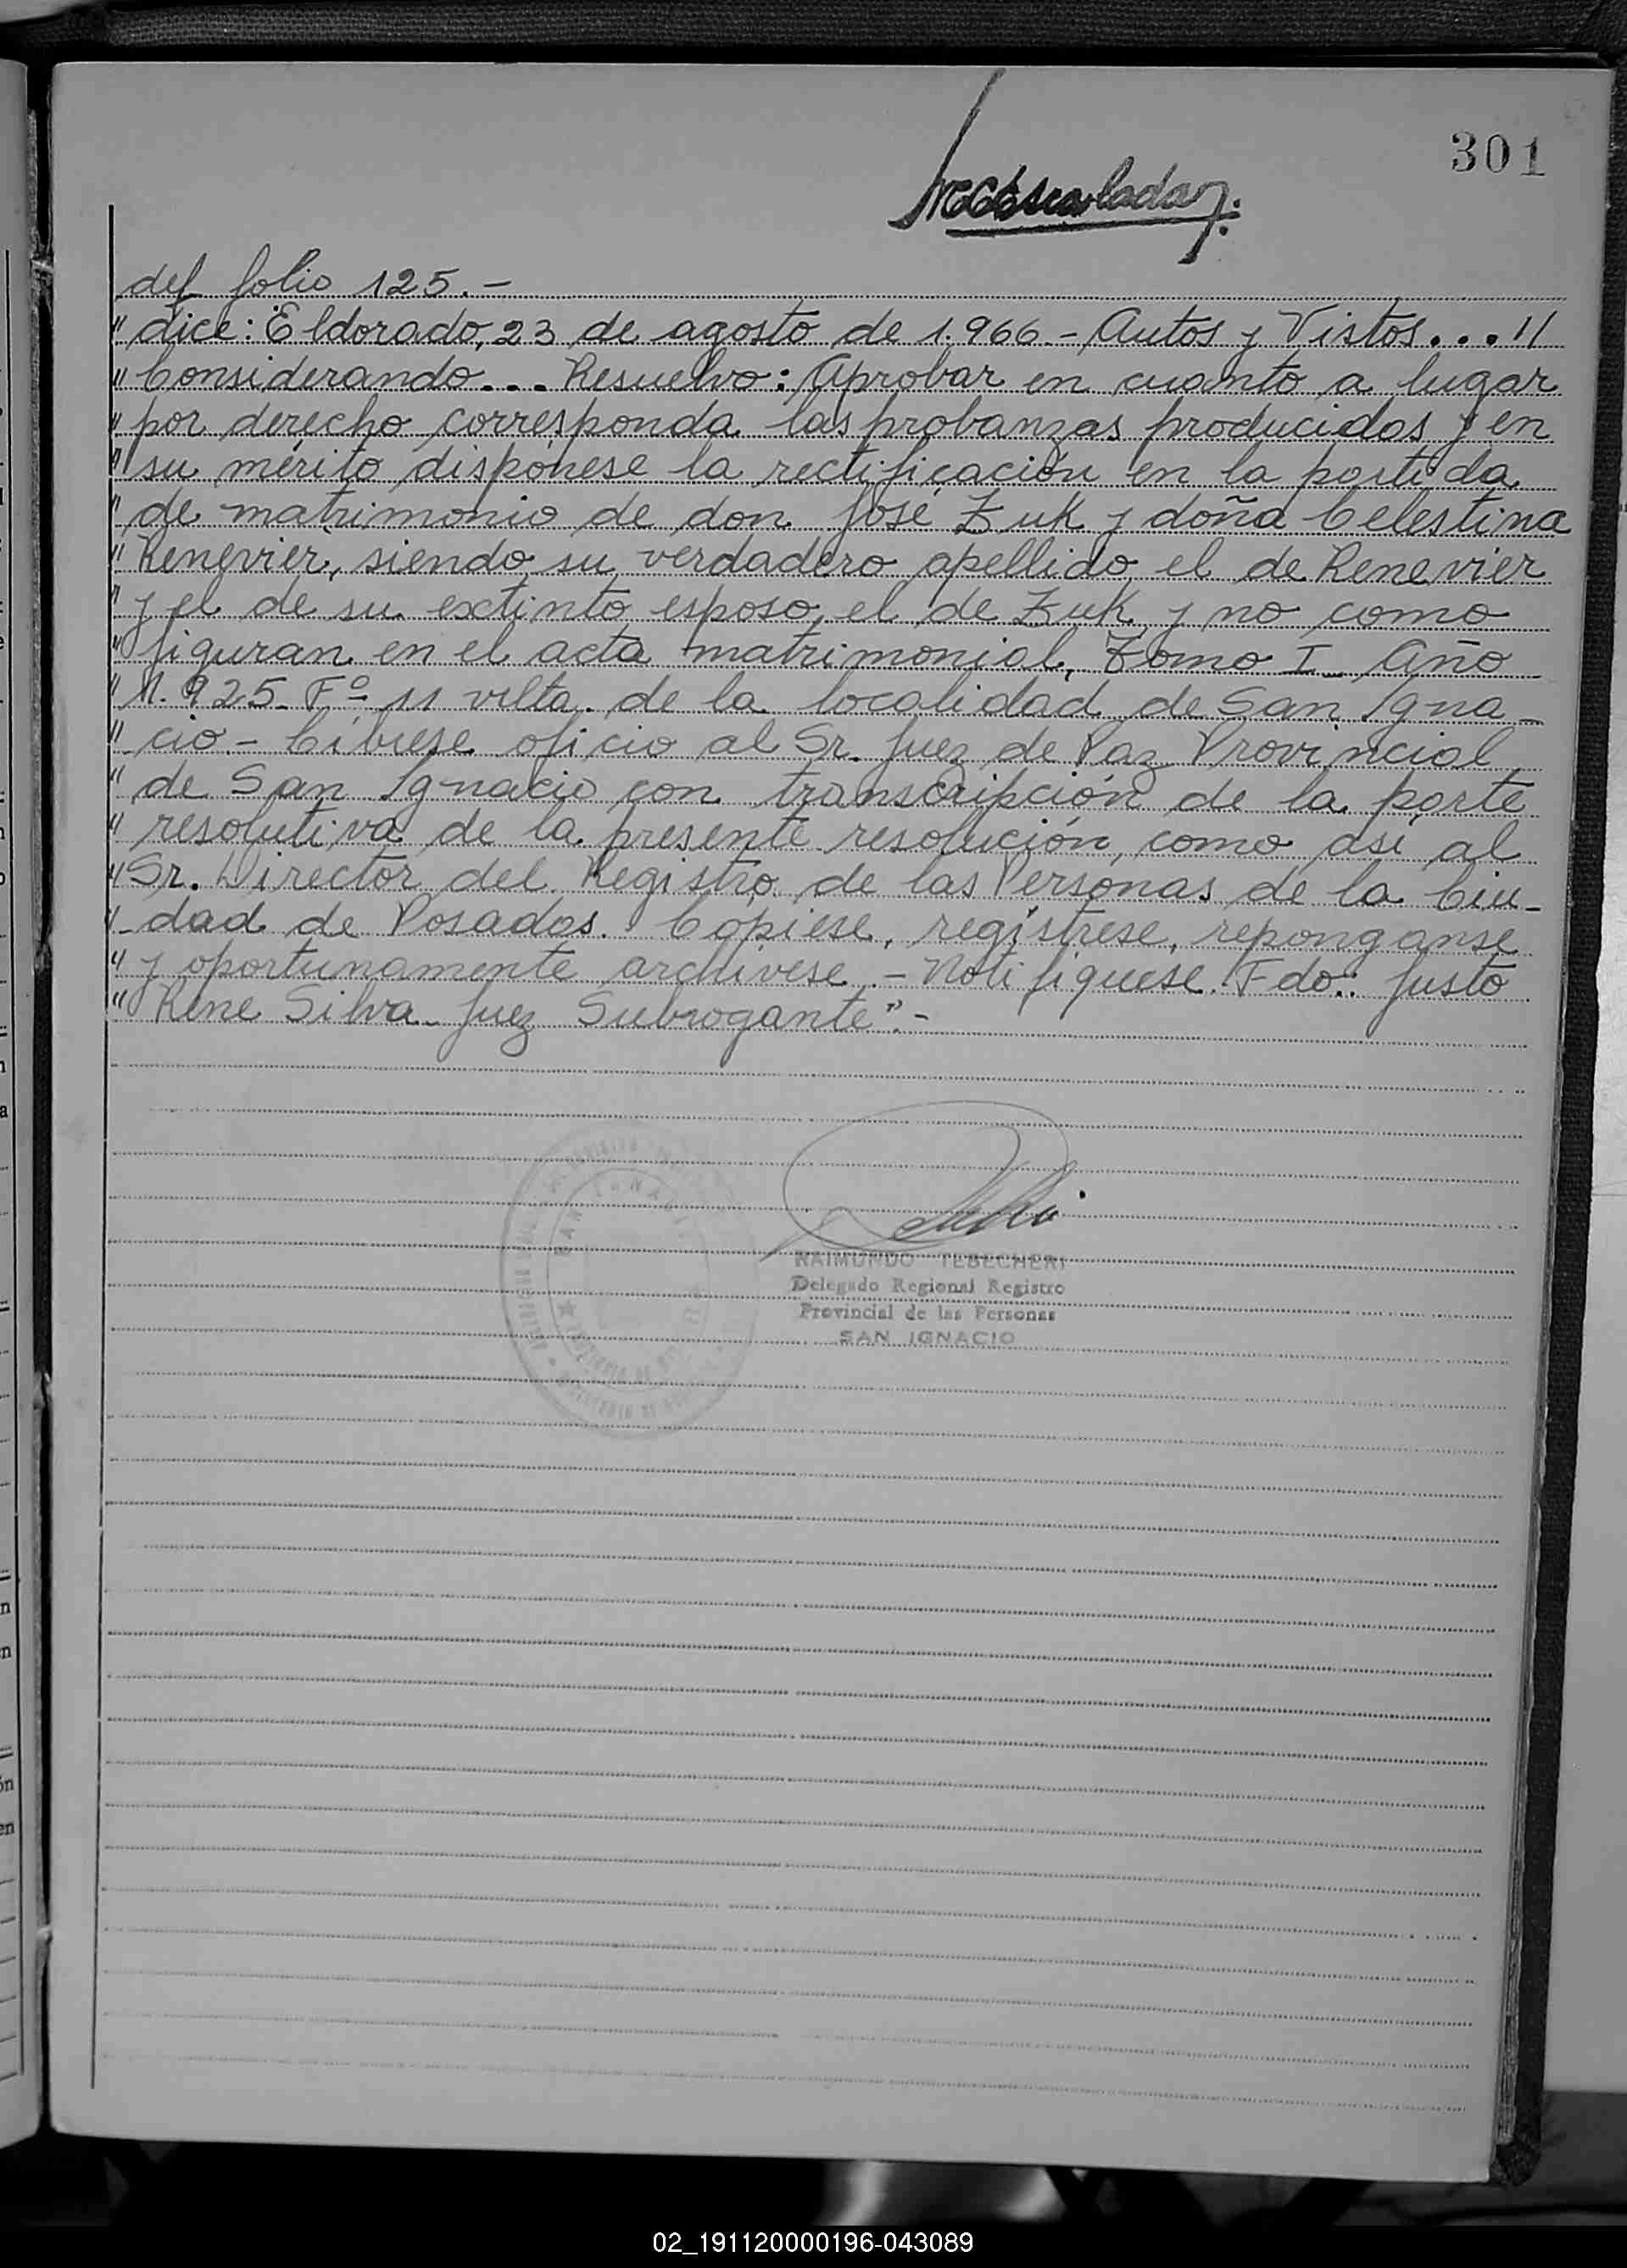 301
del folio 125.-
" dice: "Eldorado, 23 de agosto de 1.966.- Autos y Vistos... //
" Considerando... Resuelvo: Aprobar en cuanto a lugar
" por derecho corresponda las probanzas producidas y en
" su mérito dispónese la rectificación en la partida
" de matrimonio de don José Zuk y doña Celestina
" Renevier, siendo su verdadero apellido el de Renevier
" y el de su extinto esposo el de Zuk y no como
" figuran en el acta matrimonial, Tomo I - Año
" 1.925- Fº 11 vlta. de la localidad de San Igna-
" cio.- Líbrese oficio al Sr. Juez de Paz Provincial
" de San Ignacio con transcripción de la parte
" resolutiva de la presente resolución, como así al
" Sr. Director del Registro de las Personas de la Ciu-
" dad de Posadas. Cópiese, regístrese, reponganse
" y oportunamente archívese.- Notifiquese. Fdo.: Justo
" Rene Silva- Juez Subrogante".-
RAIMUNDO TEBECHERI
Delegado Regional Registro
Provincial de las Personas
SAN IGNACIO
02_191120000196-043089